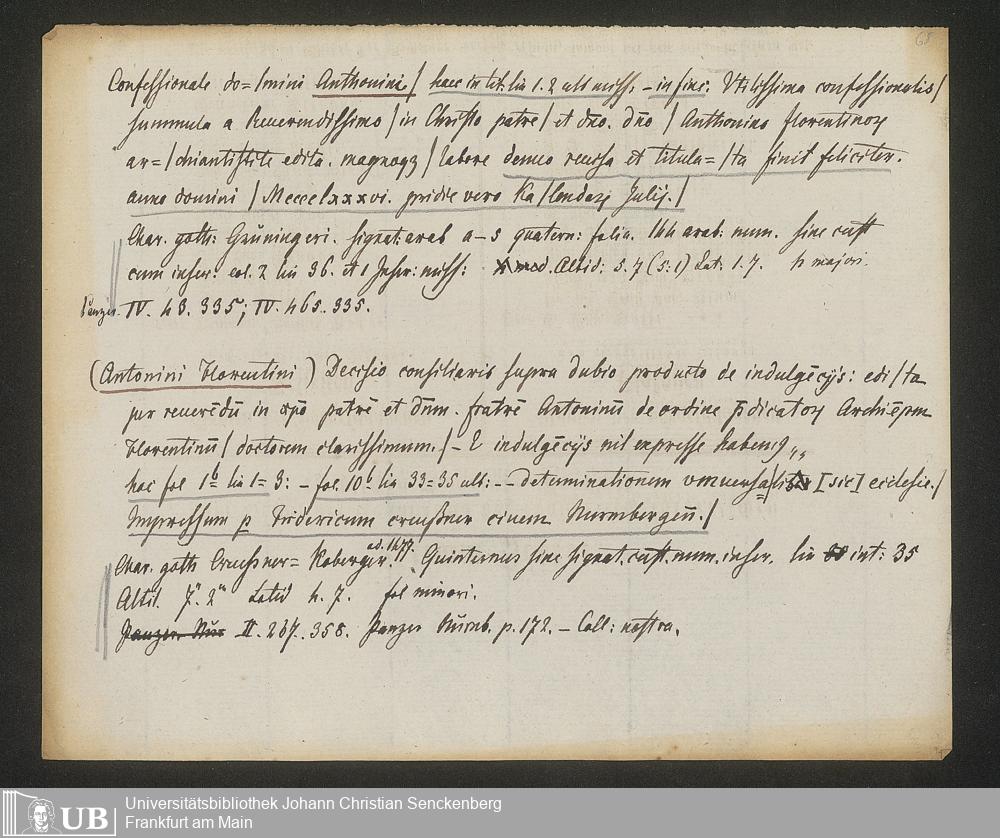 68
Confessionale do=/mini Anthonini/ haec in tit. lin 1. 2 ult miss. – in fine: Utilissima confessionalis/
summula a Reuerendissimo / in Christo patre / et dno. dno / Anthonino florentinoz
ar=/chiantistite edita. magnoqz / labore denuo reuisa et titula=/ta finit feliciter.
anno domini / Mcccclxxxvi. pridie vero Ka/lendaz Julij./
Char. goth: Grüningeri. signat: arab a–s quatern: folia. 144 arab: num. sine cust
cum inscr: col. 2 lin 36. et 1 Inscr: miss: Altid: 5. 7 (5:1) Lat: 1. 7. majori.
Panzer IV. 43. 335; IV. 465. 335.
(Antonini Florentini) Decisio consiliaris supra dubio producto de indulgēcijs: edi/ta
per reuerēdū in xpō patrē et dnm. fratrē Antoninū de ordine p̄dicatoz Archiēpm
Florentinū/ doctorem clarissimum./ – E indulgēcijs nil expresse habem9,,
hac fol 1b lin 1= 3: – fol. 10b lin 33=35 ult: – Determinationem vniuersa/lis [sic] ecclesie./
Impressum p Fridericum creußner ciuem Nurmbergen̄./
Char. goth Creußner= Koberger. ad. 1477. Quinternus sine signat. cust. num. inscr. lin int: 35
Altit. 7". 2'" Latid 4. 7. fol minori.
Panzer. Nür II. 237. 358. Panzer Nürnb. p. 172. – Coll: nostra.
UB
Universitätsbibliothek Johann Christian Senckenberg
Frankfurt am Main